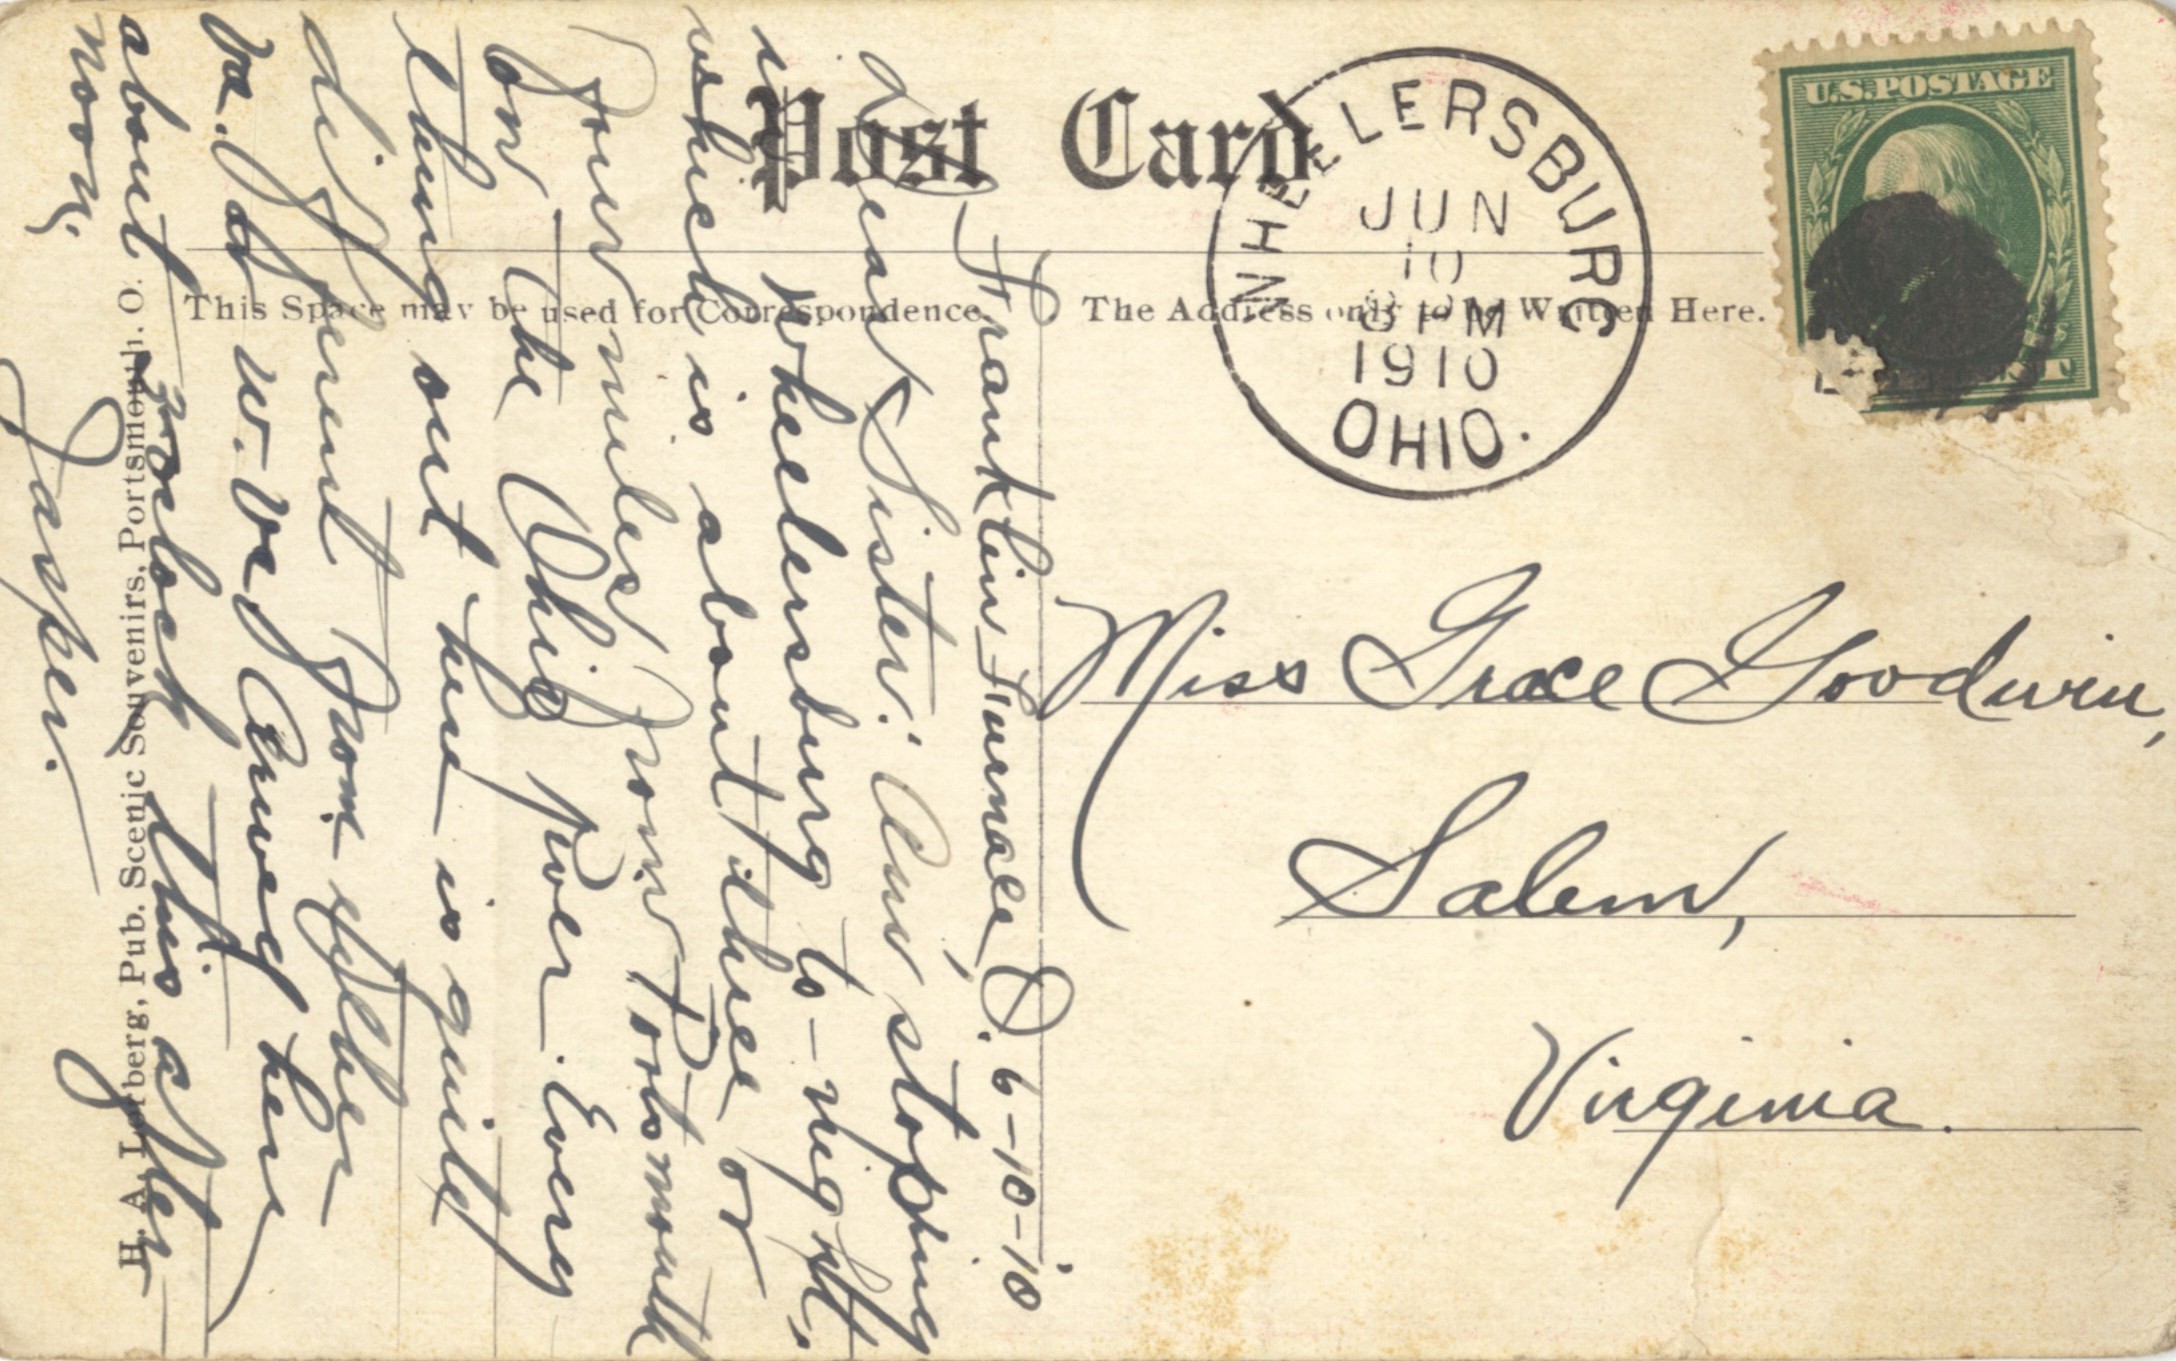 Post Card
This Space may be used for Correspondence.
The Address only to be Written Here.
WHEELERSBURG
JUN
10
8 PM
1910
OHIO.
U.S. POSTAGE
Miss Grace Goodwin,
Salem,
Virginia.
Franklin Furnace, O. 6-10-'10
Dear Sister: Am stopping
in Wheelersburg to-night,
which is about three or
four miles from Portsmouth
on the Ohio river. Every
thing out here is quite
different from either
Va. or W. Va. Arrived here
about o'clock this after
noon.
Jasper.
H. A. Lorberg, Pub. Scenic Souvenirs, Portsmouth. O.